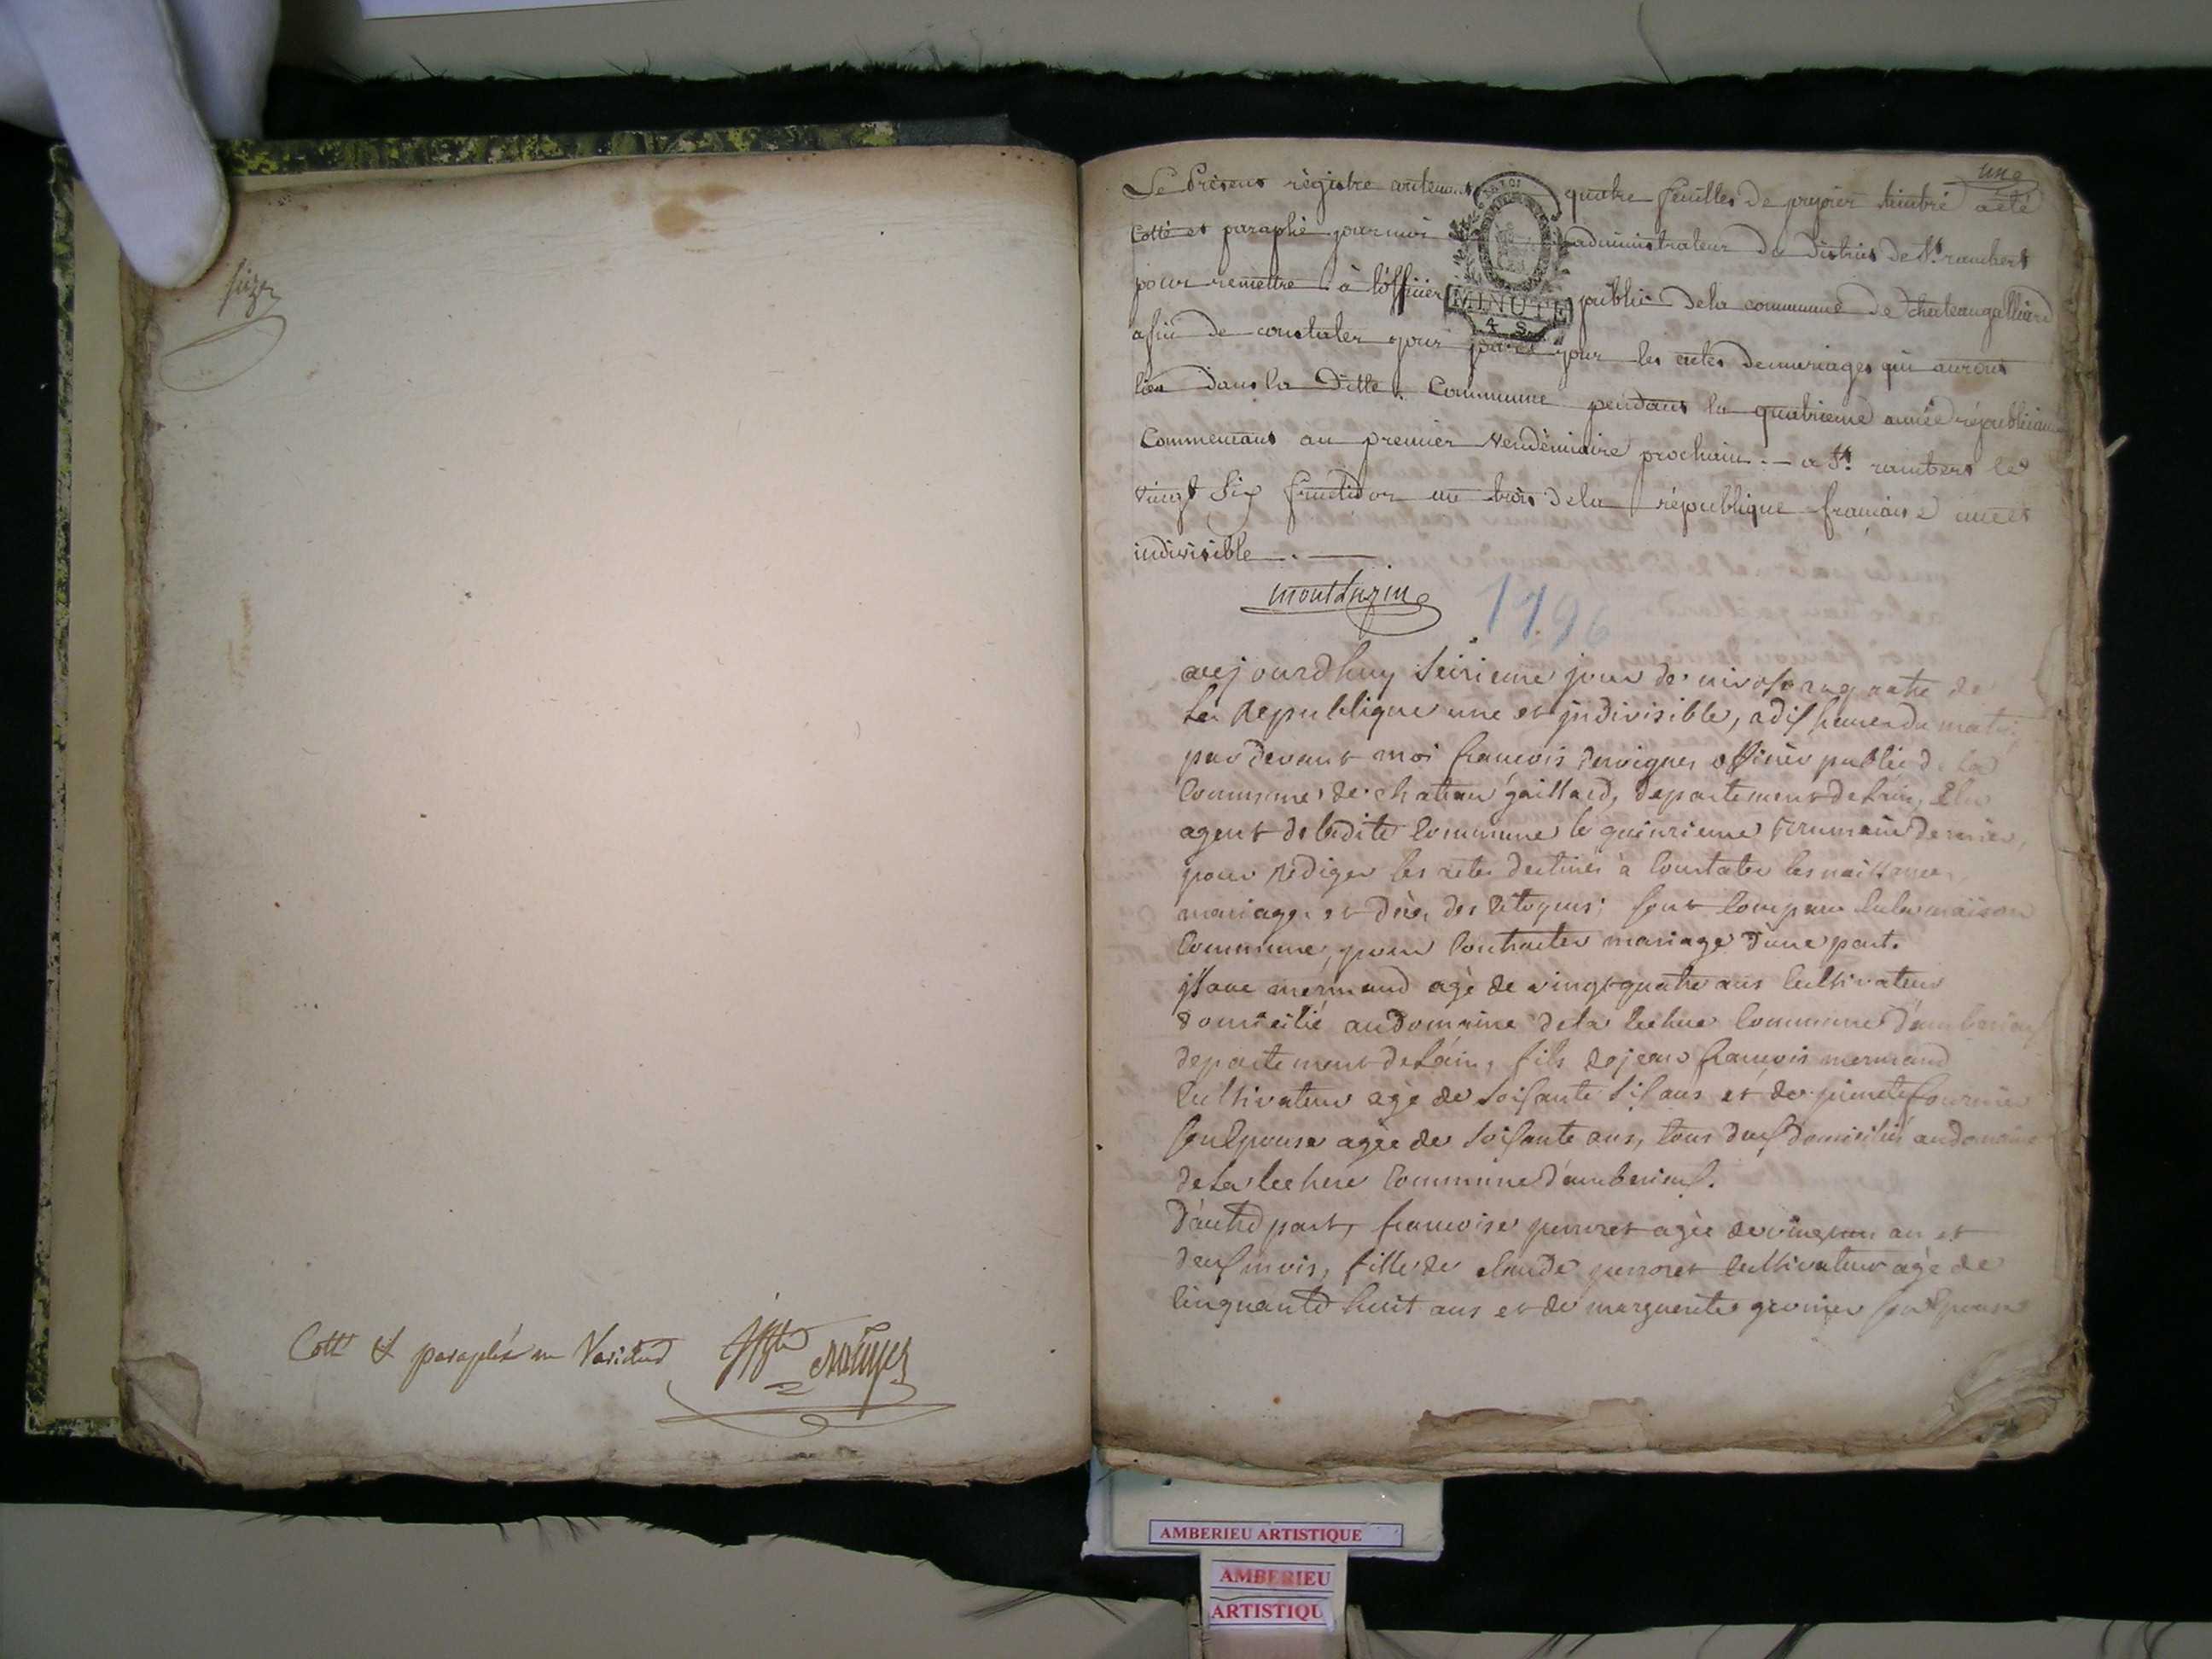 Cotté & paraphé ne Varietur
une
Le Present règistre contenant quatre feuilles de papier timbré a été
Cotté et paraphé par moi administrateur du District de St. rambert
pour remettre à l'officier public de la commune de chateaugalliard
afin de constater jour par jour les actes de mariages qui auront
lieu dans la Ditte Commune pendant la quatrieme année républicaine
Commencant au premier vendémiaire prochain. — a St. rambert le
vingt Six fructidor an trois de la république francaise une et
indivisible. —
montluzin
1796
MINUTE
4 S
aujourdhuy seizieme jour de nivose an quatre de
la Republique une et jndivisible, a dix heures du matin
par devant moi francois officier public de la
Commune de chateau gaillard, departement de lain, Elu
agent de ladite Commune le quinzieme brumaire dernier,
pour rediger les actes destinés à Constater les naissances
mariages et decès des Citoyens; sont Comparu en la maison
Commune, pour Contracter mariage d'une part.
jsaac mermand agè de vingt quatre ans Cultivateur
domicilié au domaine de la lechere Commune d'amberieux
departement de l'ain, fils de jean francois mermand
Cultivateur agè de soixante six ans et de pierrette fournier
son Epouse agée de soixante ans, tous deux domiciliés au domaine
de la lechere Commune d'amberieux.
D'autre part, francoise perroset agèe de vingt un an et
deux mois, fille de claude perroset Cultivateur agè de
Cinquante huit ans et de marguerite son Epouse
AMBERIEU ARTISTIQUE
AMBERIEU
ARTISTIQU